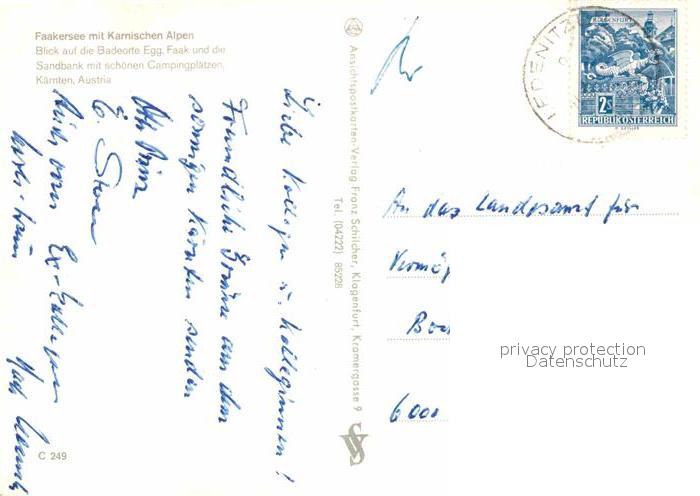 Faakersee mit Karnischen Alpen
Blick auf die Badeorte Egg, Faak und die
Sandbank mit schönen Campingplätzen,
Kärnten, Austria
Liebe Kollegen u. Kolleginnen!
Freundliche Grüsse aus dem
sonnigen Kärnten senden
Auch vom Ex-Kollegen
C 249
Ansichtspostkarten-Verlag Franz Schilcher, Klagenfurt, Kramergasse 9
Tel. (04222) 85228
LEDENITZ
2s
REPUBLIK ÖSTERREICH
An das Landesamt für
Vermög
6000
privacy protection
Datenschutz